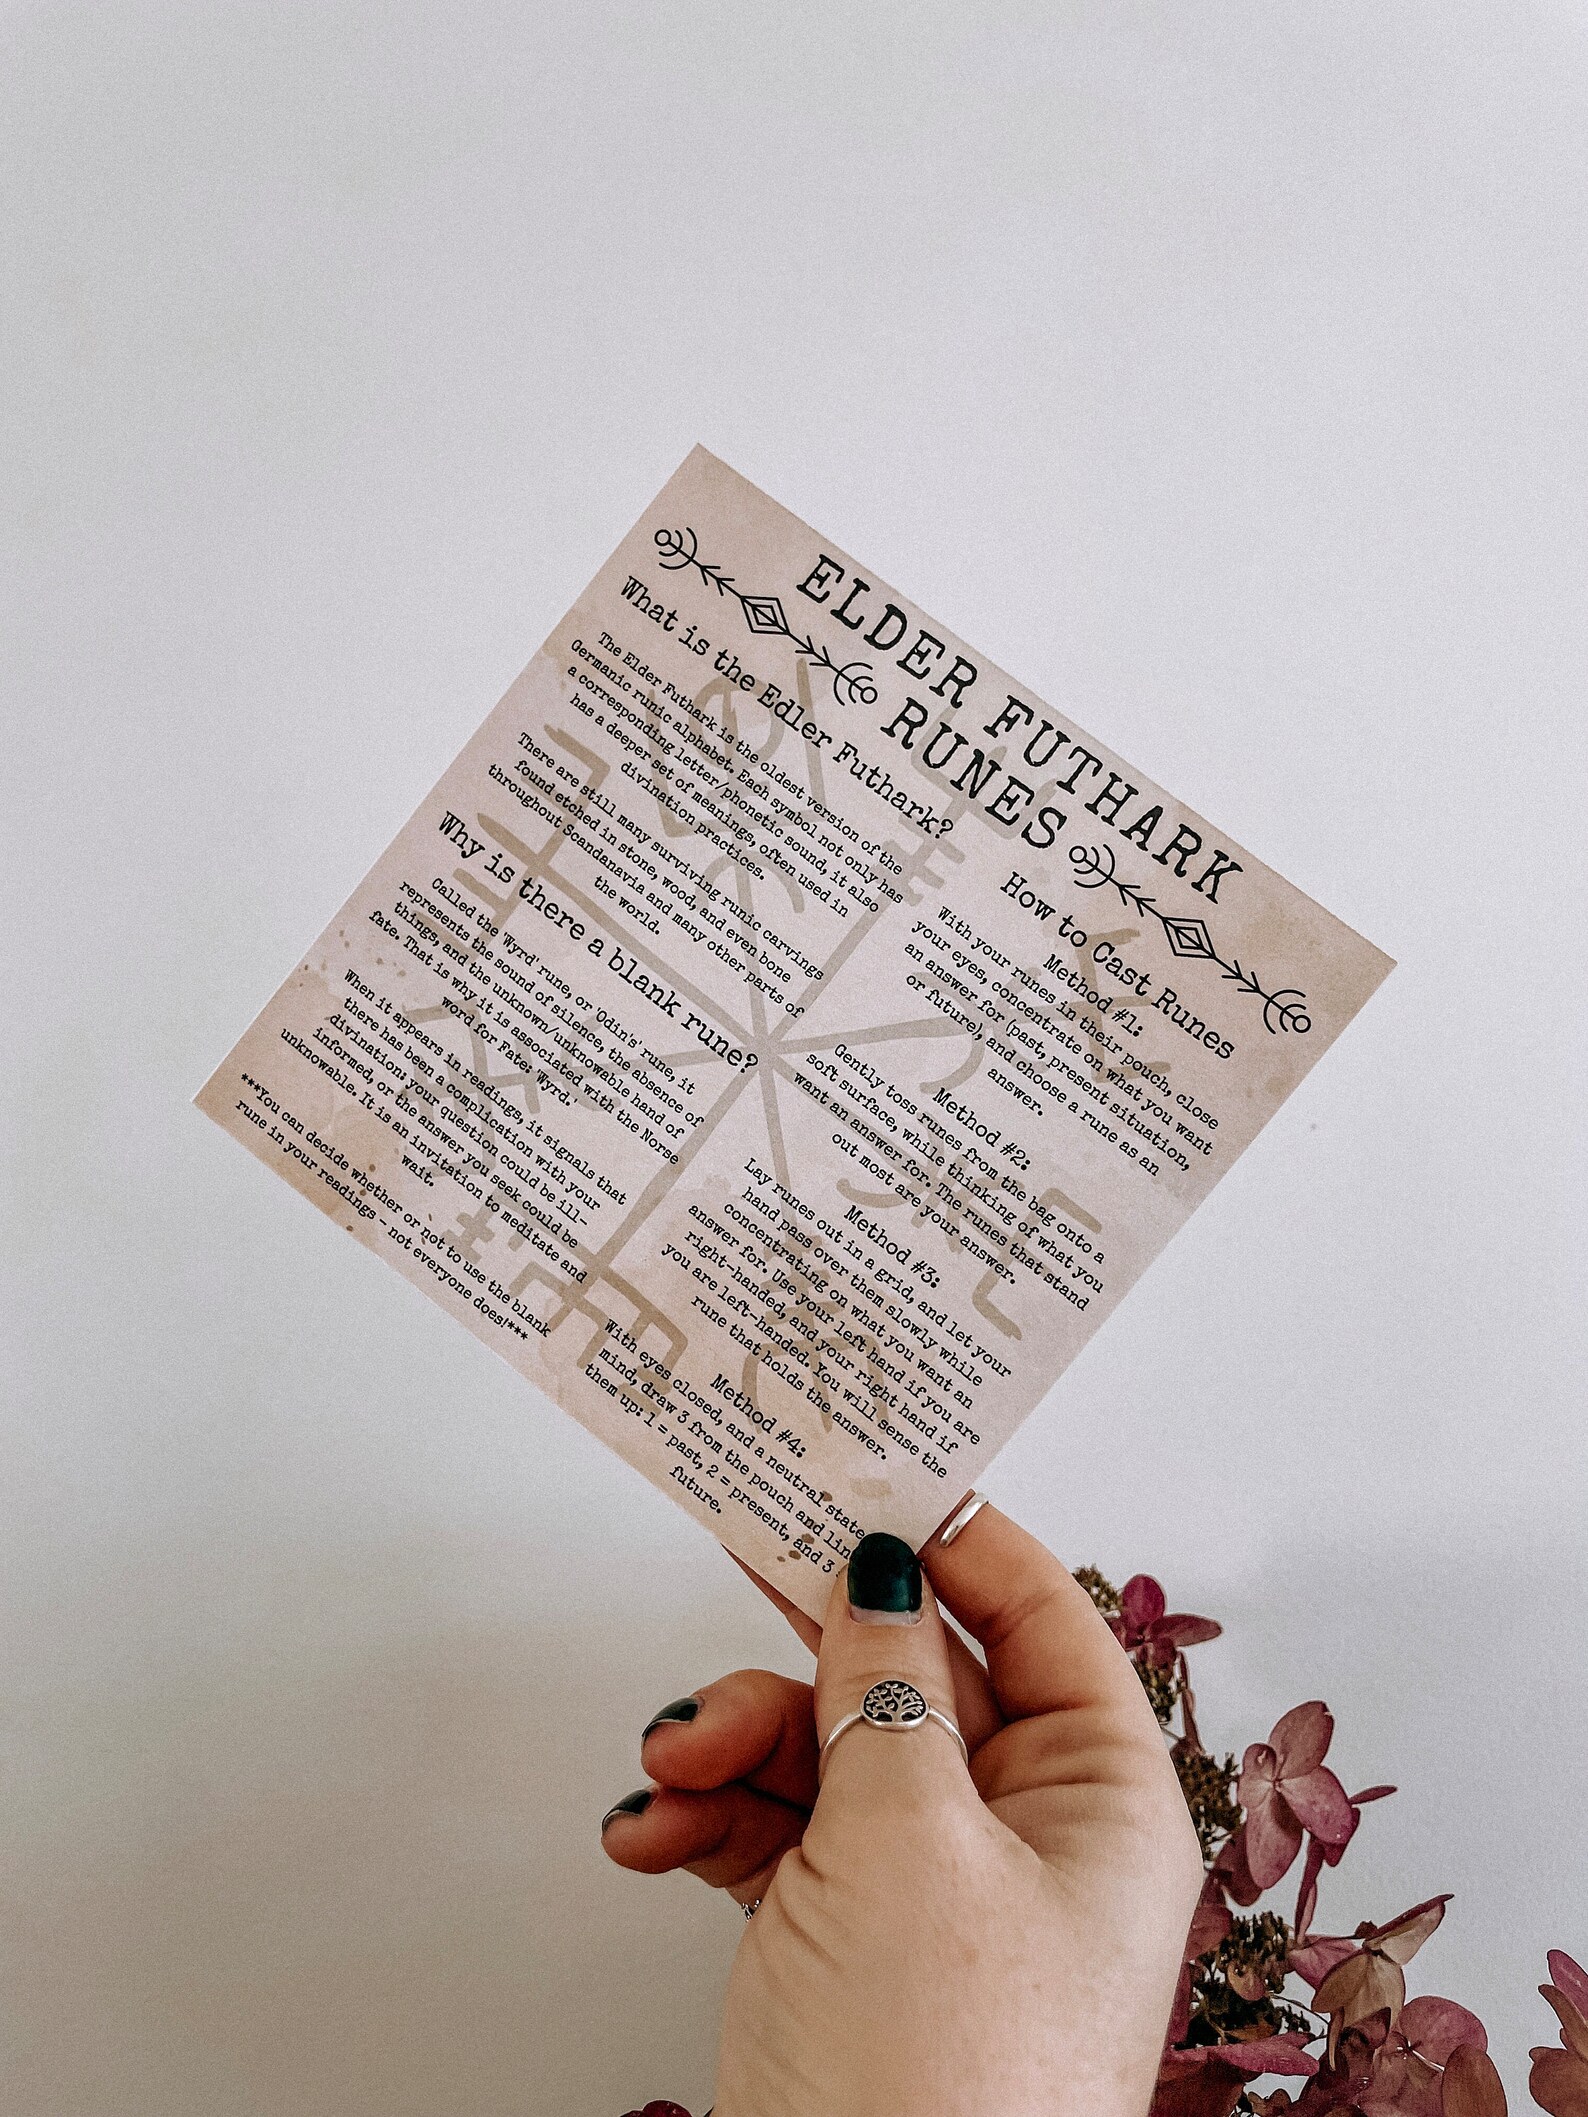 ELDER FUTHARK
RUNES
What is the Edler Futhark?
The Elder Futhark is the oldest version of the
Germanic runic alphabet. Each symbol not only has
a corresponding letter/phonetic sound, it also
has a deeper set of meanings, often used in
divination practices.
There are still many surviving runic carvings
found etched in stone, wood, and even bone
throughout Scandanavia and many other parts of
the world.
Why is there a blank rune?
Called the 'Wyrd' rune, or 'Odin's' rune, it
represents the sound of silence, the absence of
things, and the unknown/unknowable hand of
fate. That is why it is associated with the Norse
word for Fate: 'Wyrd.'
When it appears in readings, it signals that
there has been a complication with your
divination; your question could be ill-
informed, or the answer you seek could be
unknowable. It is an invitation to meditate and
wait.
***You can decide whether or not to use the blank
rune in your readings - not everyone does!***
How to Cast Runes
Method #1:
With your runes in their pouch, close
your eyes, concentrate on what you want
an answer for (past, present situation,
or future), and choose a rune as an
answer.
Method #2:
Gently toss runes from the bag onto a
soft surface, while thinking of what you
want an answer for. The runes that stand
out most are your answer.
Method #3:
Lay runes out in a grid, and let your
hand pass over them slowly while
concentrating on what you want an
answer for. Use your left hand if you are
right-handed, and your right hand if
you are left-handed. You will sense the
rune that holds the answer.
Method #4:
With eyes closed, and a neutral state
mind, draw 3 from the pouch and
them up: 1 = past, 2 = present, and 3
future.